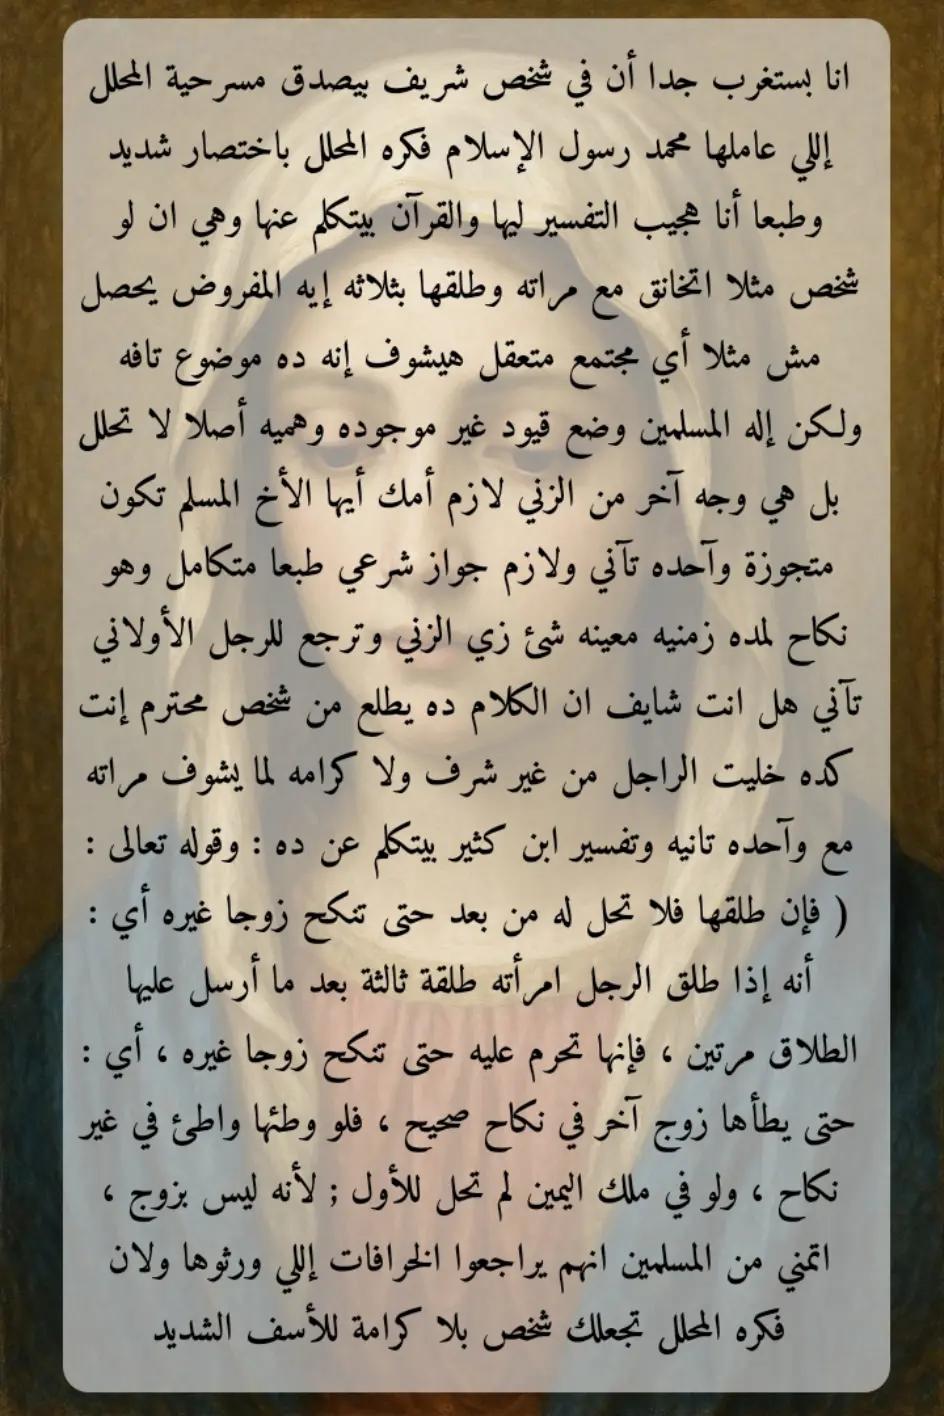 انا بستغرب جدا أن في شخص شريف بيصدق مسرحية المحلل
إللي عاملها محمد رسول الإسلام فكره المحلل باختصار شديد
وطبعا أنا هجيب التفسير ليها والقرآن بيتكلم عنها وهي ان لو
شخص مثلا اتخانق مع مراته وطلقها بثلاثه إيه المفروض يحصل
مش مثلا أي مجتمع متعقل هيشوف إنه ده موضوع تافه
ولكن إله المسلمين وضع قيود غير موجوده وهميه أصلا لا تحلل
بل هي وجه آخر من الزني لازم أمك أيها الأخ المسلم تكون
متجوزة وآحده تآني ولازم جواز شرعي طبعا متكامل وهو
نكاح لمده زمنيه معينه شئ زي الزني وترجع للرجل الأولاني
تآني هل انت شايف ان الكلام ده يطلع من شخص محترم إنت
كده خليت الراجل من غير شرف ولا كرامه لما يشوف مراته
مع وآحده تانيه وتفسير ابن كثير بيتكلم عن ده : وقوله تعالى :
( فإن طلقها فلا تحل له من بعد حتى تنكح زوجا غيره أي :
أنه إذا طلق الرجل امرأته طلقة ثالثة بعد ما أرسل عليها
الطلاق مرتين ، فإنها تحرم عليه حتى تنكح زوجا غيره ، أي :
حتى يطأها زوج آخر في نكاح صحيح ، فلو وطئها واطئ في غير
نكاح ، ولو في ملك اليمين لم تحل للأول ; لأنه ليس بزوج ،
اتمني من المسلمين انهم يراجعوا الخرافات إللي ورثوها ولان
فكره المحلل تجعلك شخص بلا كرامة للأسف الشديد